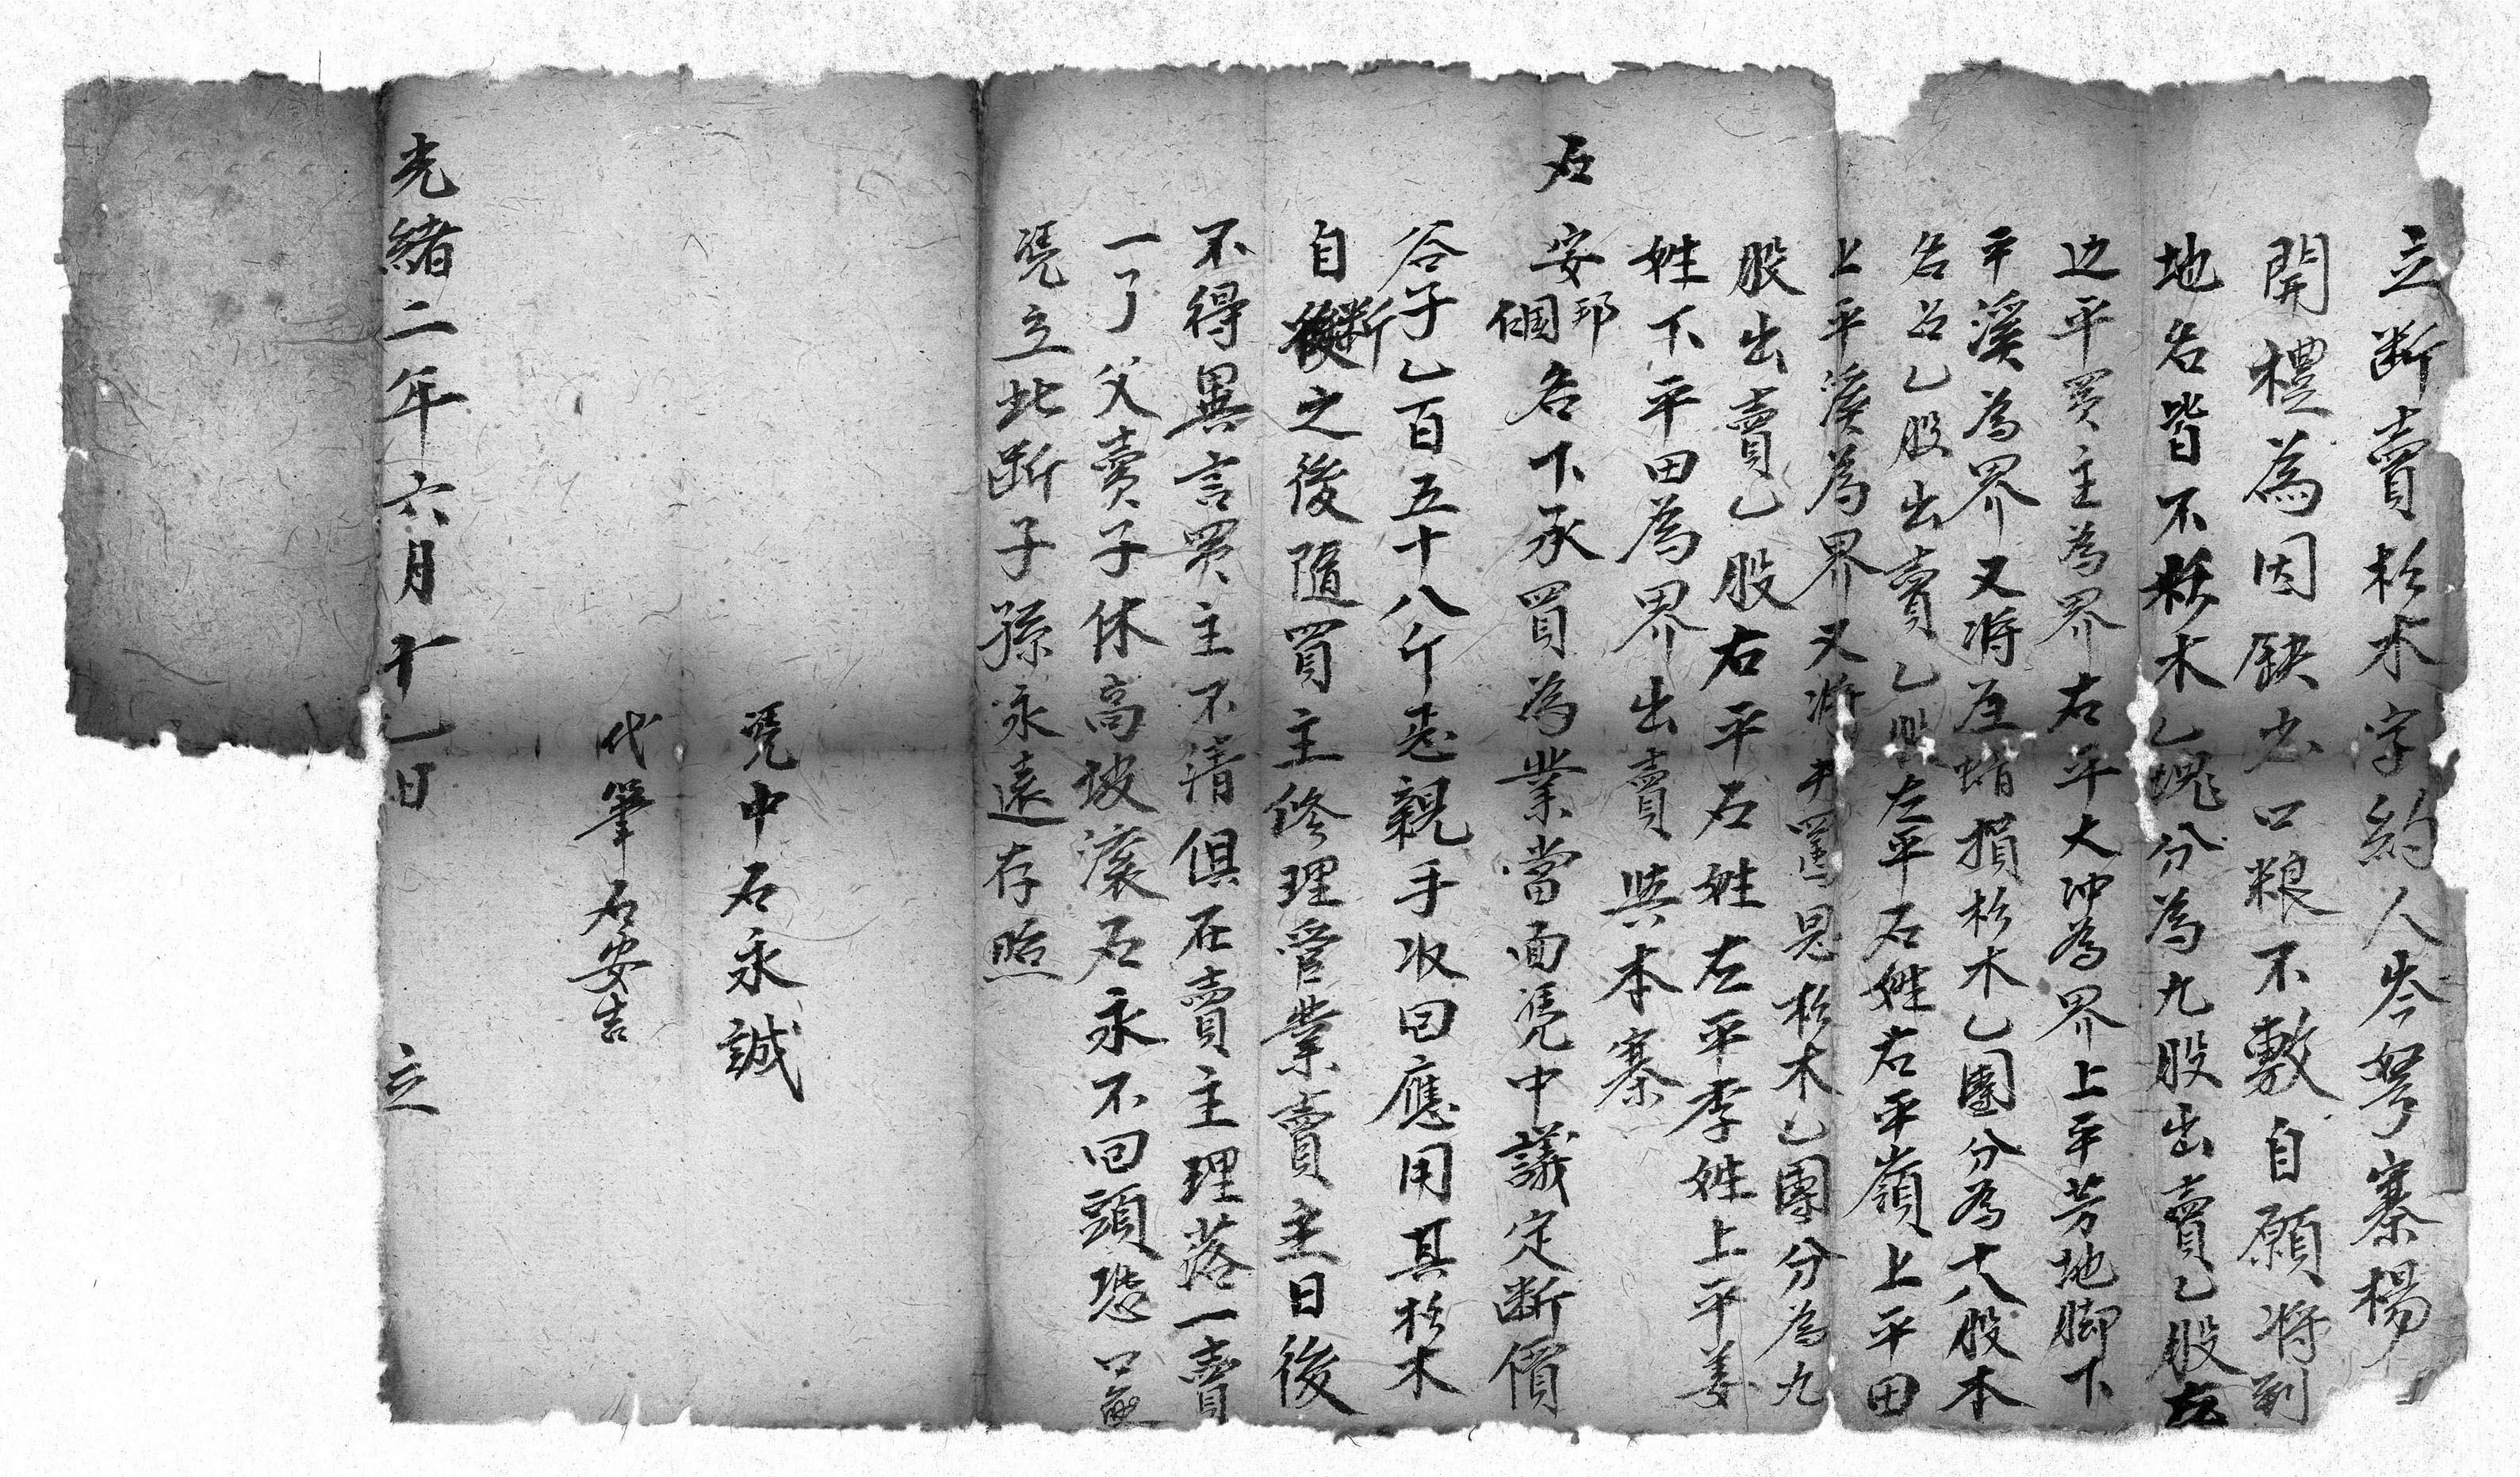 立断賣杉木字約人岑孥寨楊
開禮為因缺少口粮不敷自願将到
地名皆不杉木乙塊分為九股出賣乙股左
边平買主為界右平大冲為界上平芳地脚下
平溪為界又将互蛸損杉木乙團分為十八股本
名占乙股出賣乙股左平石姓右平嶺上平田
上平溪為界又将井見杉木乙團分為九
股出賣乙股右平石姓左平李姓上平姜
姓下平田為界出賣與本寨
石安邦個名下承買為業當面凴中議定断價
谷子乙百五十八斤乙百五十八斤親手收回應用其杉木
自断之後隨買主修理管業賣主日後
不得異言買主不清俱在賣主理落一賣
一了父賣子休高坡滾石永不回頭恐口無
凴立此断子孫永遠存照
凴中石永誠
代筆石安吉
光緒二年六月十乙日 立